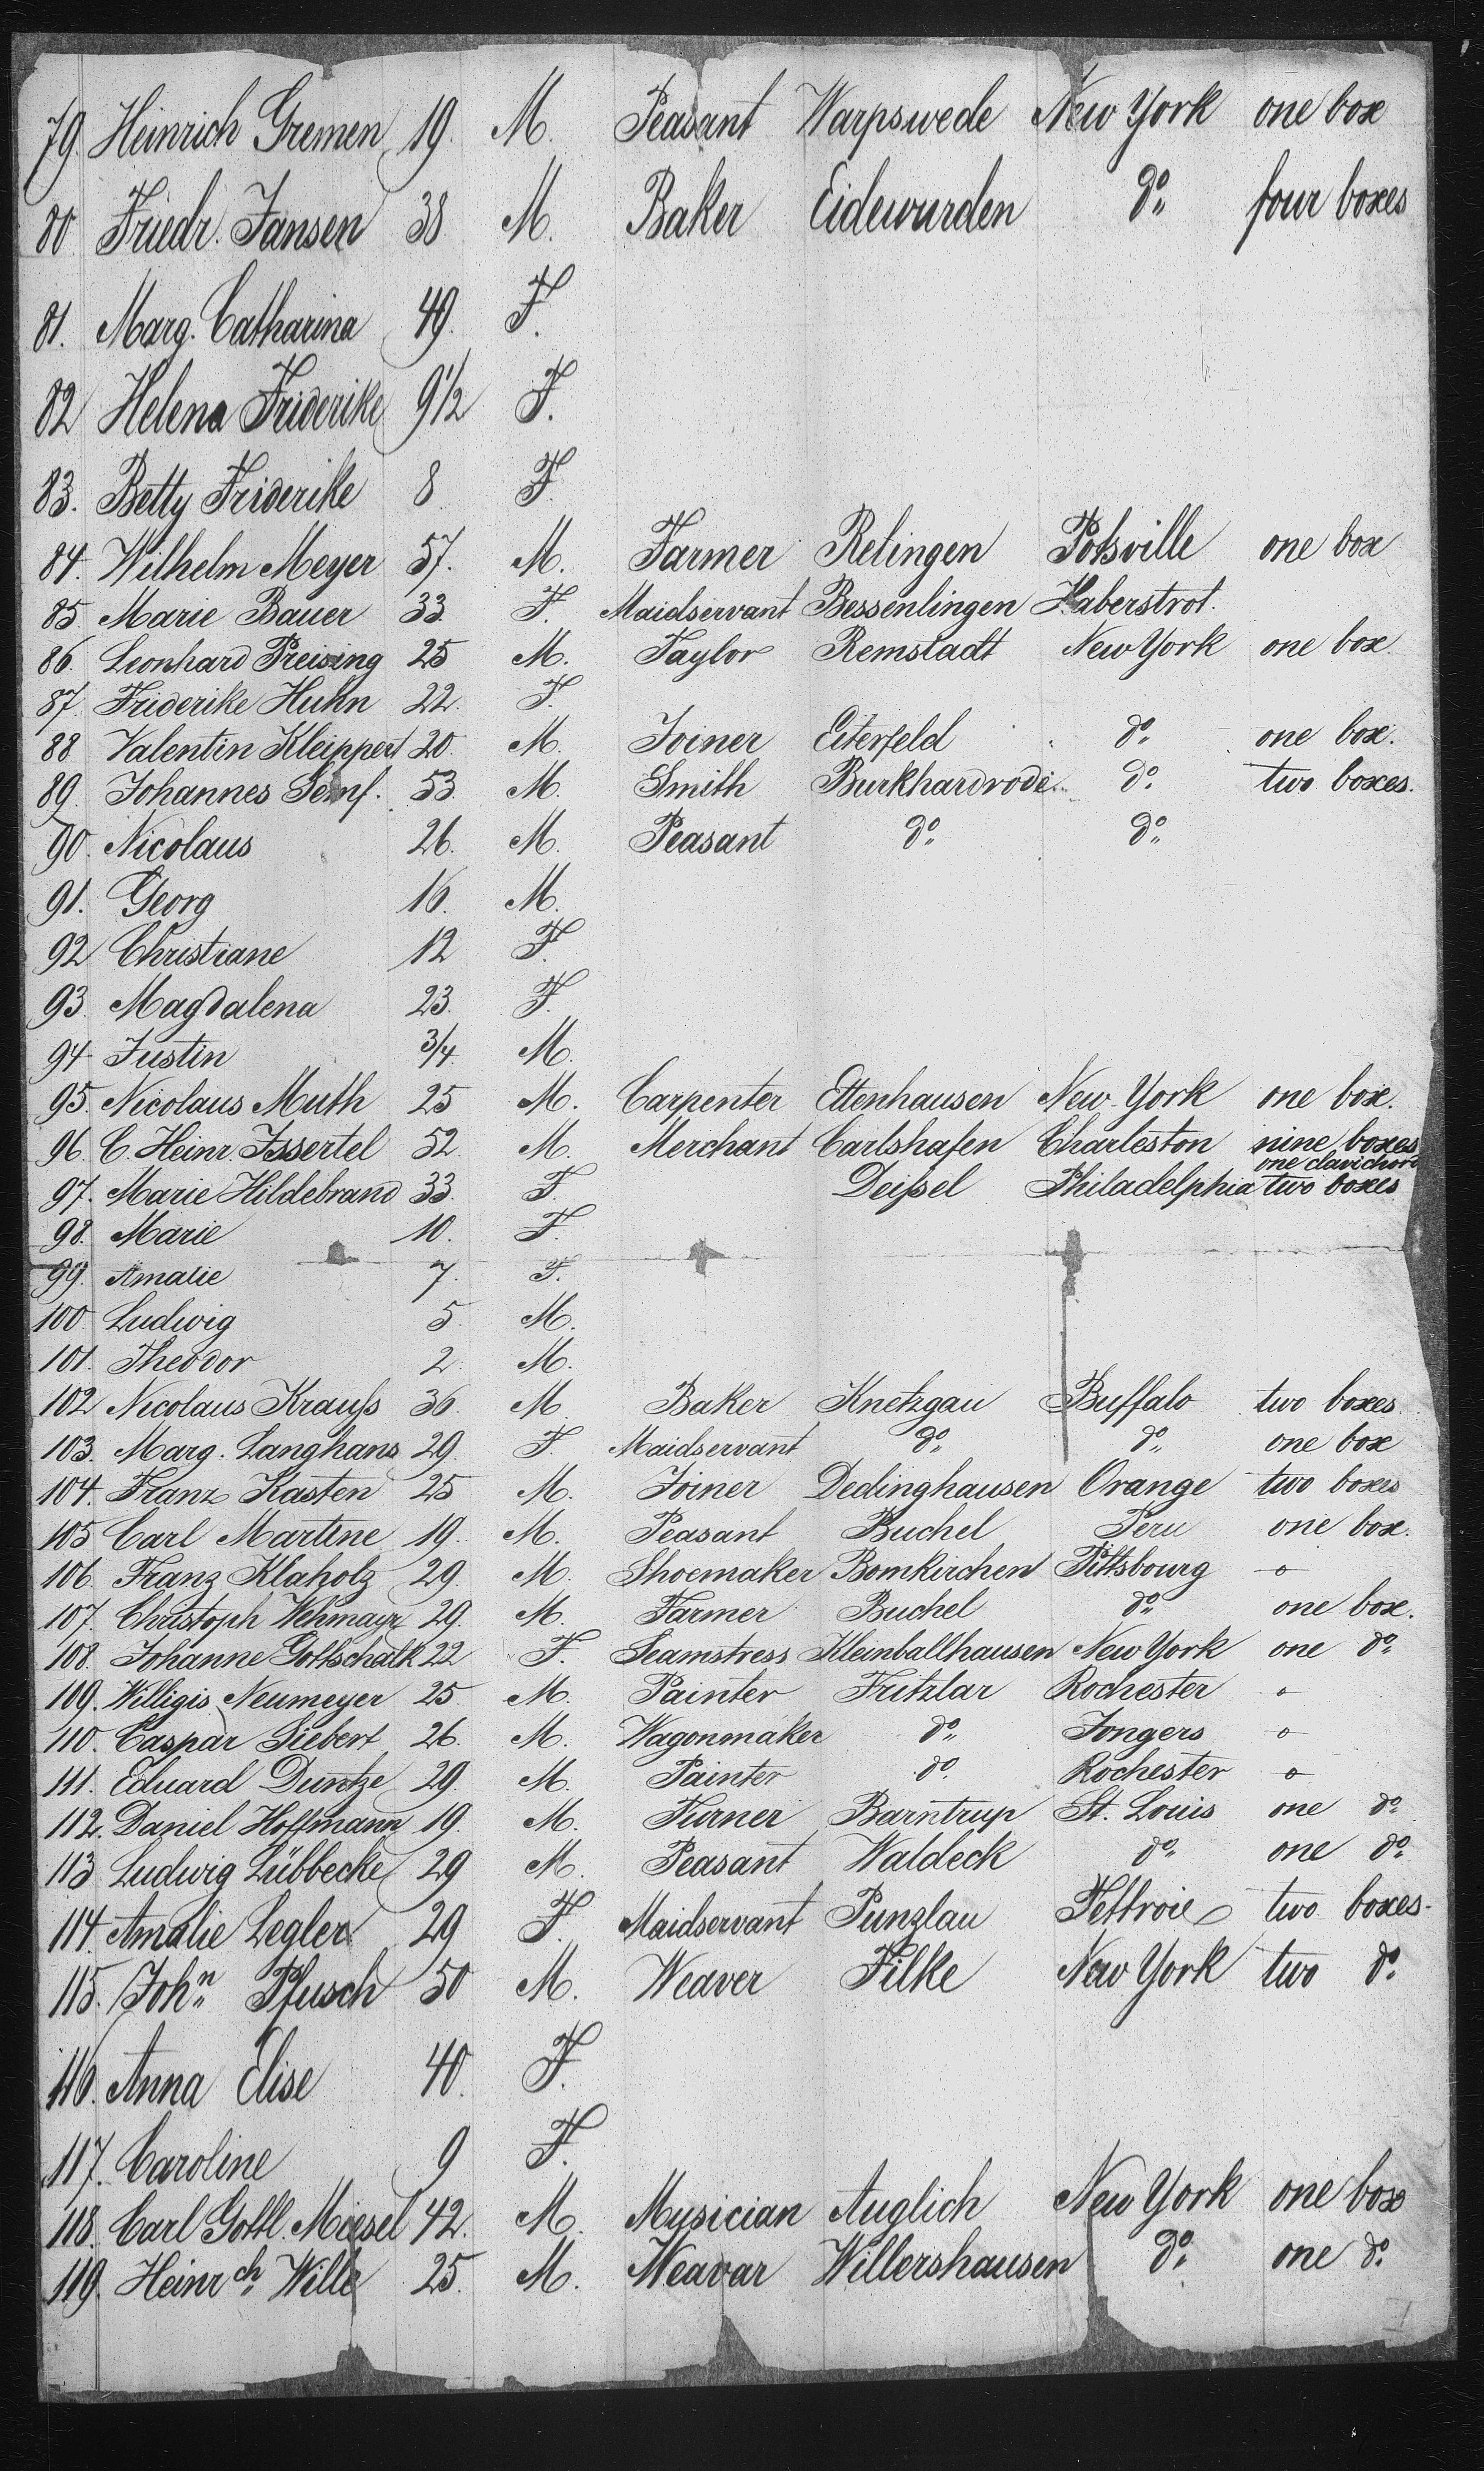 79. Heinrich Gremen 19. M. Peasant Warpswede New York one box
80 Friedr. Jansen 38 M. Baker Eidewurden do. four boxes
81. Marg. Catharina 49. F.
82 Helena Friderike 9 1/2 F.
83. Betty Friderike 8 F.
84. Wilhelm Meyer 57. M. Farmer Relingen Potsville one box
85. Marie Bauer 33. F. Maidservant Bessenlingen Haberstrot.
86. Leonhard Preising 25 M. Taylor Remstadt New York one box.
87. Friderike Huhn 22. F.
88 Valentin Kleippert 20. M. Joiner Eiterfeld do. one box.
89. Johannes Senf. 53. M. Smith Burkhardrode do. two boxes.
90. Nicolaus 26. M. Peasant do. do.
91. Georg 16. M.
92 Christiane 12 F.
93. Magdalena 23. F.
94 Justin 3/4. M.
95. Nicolaus Muth 25 M. Carpenter Ettenhausen New York one box.
96. C. Heinr. Issertel 52. M. Merchant Carlshafen Charleston nine boxes
one clavichord
97. Marie Hildebrand 33. F. Deißel Philadelphia two boxes
98. Marie 10. F.
99. Amalie 7. F.
100 Ludwig 5. M.
101. Theodor 2. M.
102 Nicolaus Krauß 36. M. Baker Knetzgau Buffalo two boxes.
103. Marg. Langhans 29. F. Maidservant do. do. one box
104. Franz Kasten 25 M. Joiner Dedinghausen Orange two boxes
105 Carl Martine 19. M. Peasant Buchel Peru one box.
106. Franz Klaholz 29. M. Shoemaker Bomkirchen Pittsbourg -o-
107. Christoph Wehmayr 29. M. Farmer Buchel do. one box.
108. Johanne Gottschalk 22 F. Seamstress Kleinballhausen New York one do.
109. Willigis Neumeyer 25 M. Painter Fritzlar Rochester -o-
110. Caspar Siebert 26. M. Wagonmaker do. Jongers -o-
111. Eduard Duntze 29. M. Painter do. Rochester -o-
112. Daniel Hoffmann 19. M. Turner Barntrup St. Louis one do.
113 Ludwig Lübbecke 29 M. Peasant Waldeck do. one do.
114. Amalie Legler 29 F. Maidservant Punzlau Fettroie two boxes.
115. John. Pfusch 50 M. Weaver Filke New York two do.
116. Anna Elise 40. F.
117. Caroline 9 F.
118. Carl Gottl. Miesel 42. M. Musician Auglich New York one box
119. Heinrch. Wille 25. M. Weavar Willershausen do. one do.